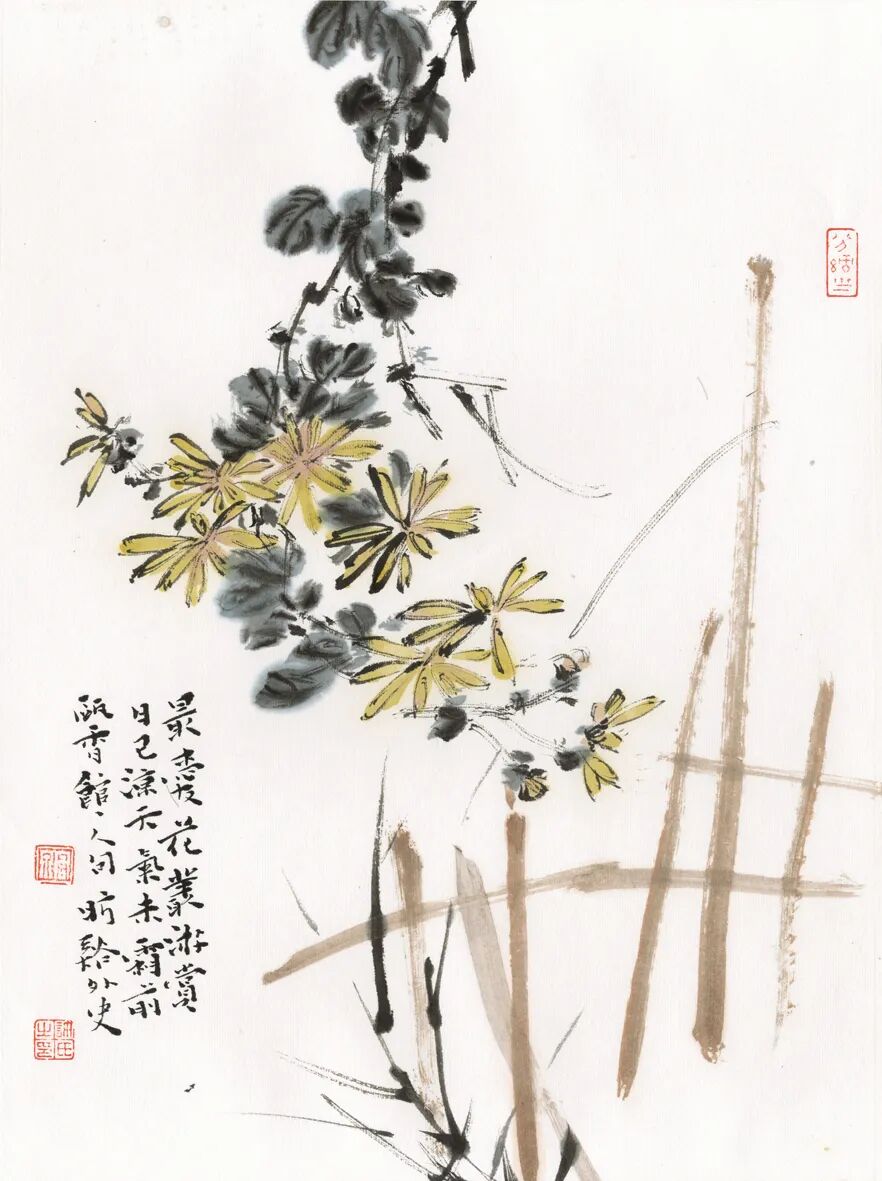 最愛花叢游賞
日已涼天氣未霜前
甌香館人句昕鎔外史